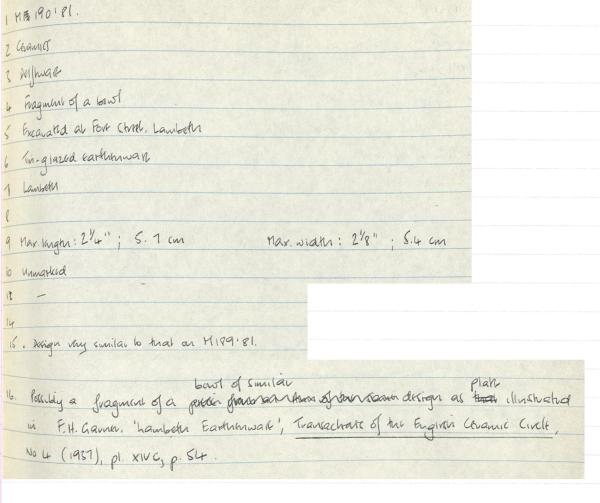 1 M190·81.
2 Ceramics
3 Delftware
4 Fragment of a bowl
5 Excavated at Fore Street, Lambeth
6 Tin-glazed earthenware
7 Lambeth
8
9 Max. length: 2 1/4" ; 5.7 cm Max. width: 2 1/8" ; 5.4 cm
10 Unmarked
13 —
14
15. Design very similar to that on M189·81.
bowl of similar plate
16. Possibly a fragment of a design as illustrated
in F.H. Garner, 'Lambeth Earthenware', Transactions of the English Ceramic Circle,
No 4 (1937), pl. XIVc, p. 54.